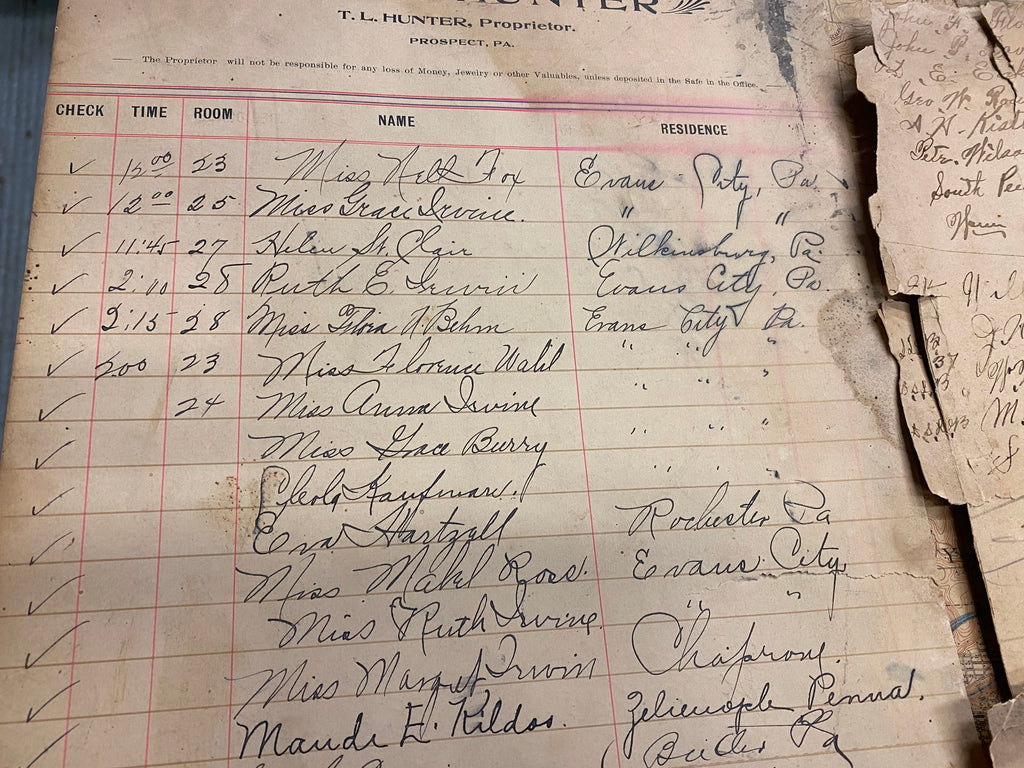 HUNTER
T. L. HUNTER, Proprietor.
PROSPECT, PA.
The Proprietor will not be responsible for any loss of Money, Jewelry or other Valuables, unless deposited in the Safe in the Office.
CHECK TIME ROOM NAME RESIDENCE
✓ 12 00 23 Miss Nell Fox Evans City, Pa.
✓ 12 00 25 Miss Grace Irvine. " "
✓ 11:45 27 Helen St. Clair Wilkinsburg, Pa.
✓ 2:00 28 Ruth E. Irwin Evans City Pa.
✓ 2:15 28 Miss Flora A. Behm Evans City Pa.
✓ 2:00 23 Miss Florence Wahl " " "
✓ 24 Miss Anna Irvine " " "
✓ Miss Grace Burry " " "
✓ Cleola Kaufman. " " "
✓ Eva Hartzall Rochester Pa
✓ Miss Mabel Ross. Evans City
✓ Miss Ruth Irvine. " "
✓ Miss Margret Irwin Chaprone.
✓ Maude E. Kildoo. Zelienople Penna.
Butler Pa
John F.
John P.
Geo W.
Pete Wilson
South